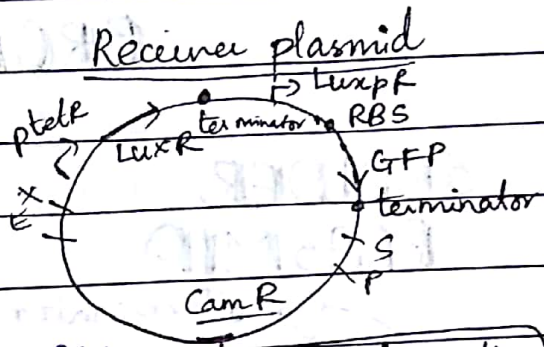 Receiver plasmid
LuxpR
ptetR
terminator
RBS
LuxR
GFP
X
terminator
E
S
P
CamR